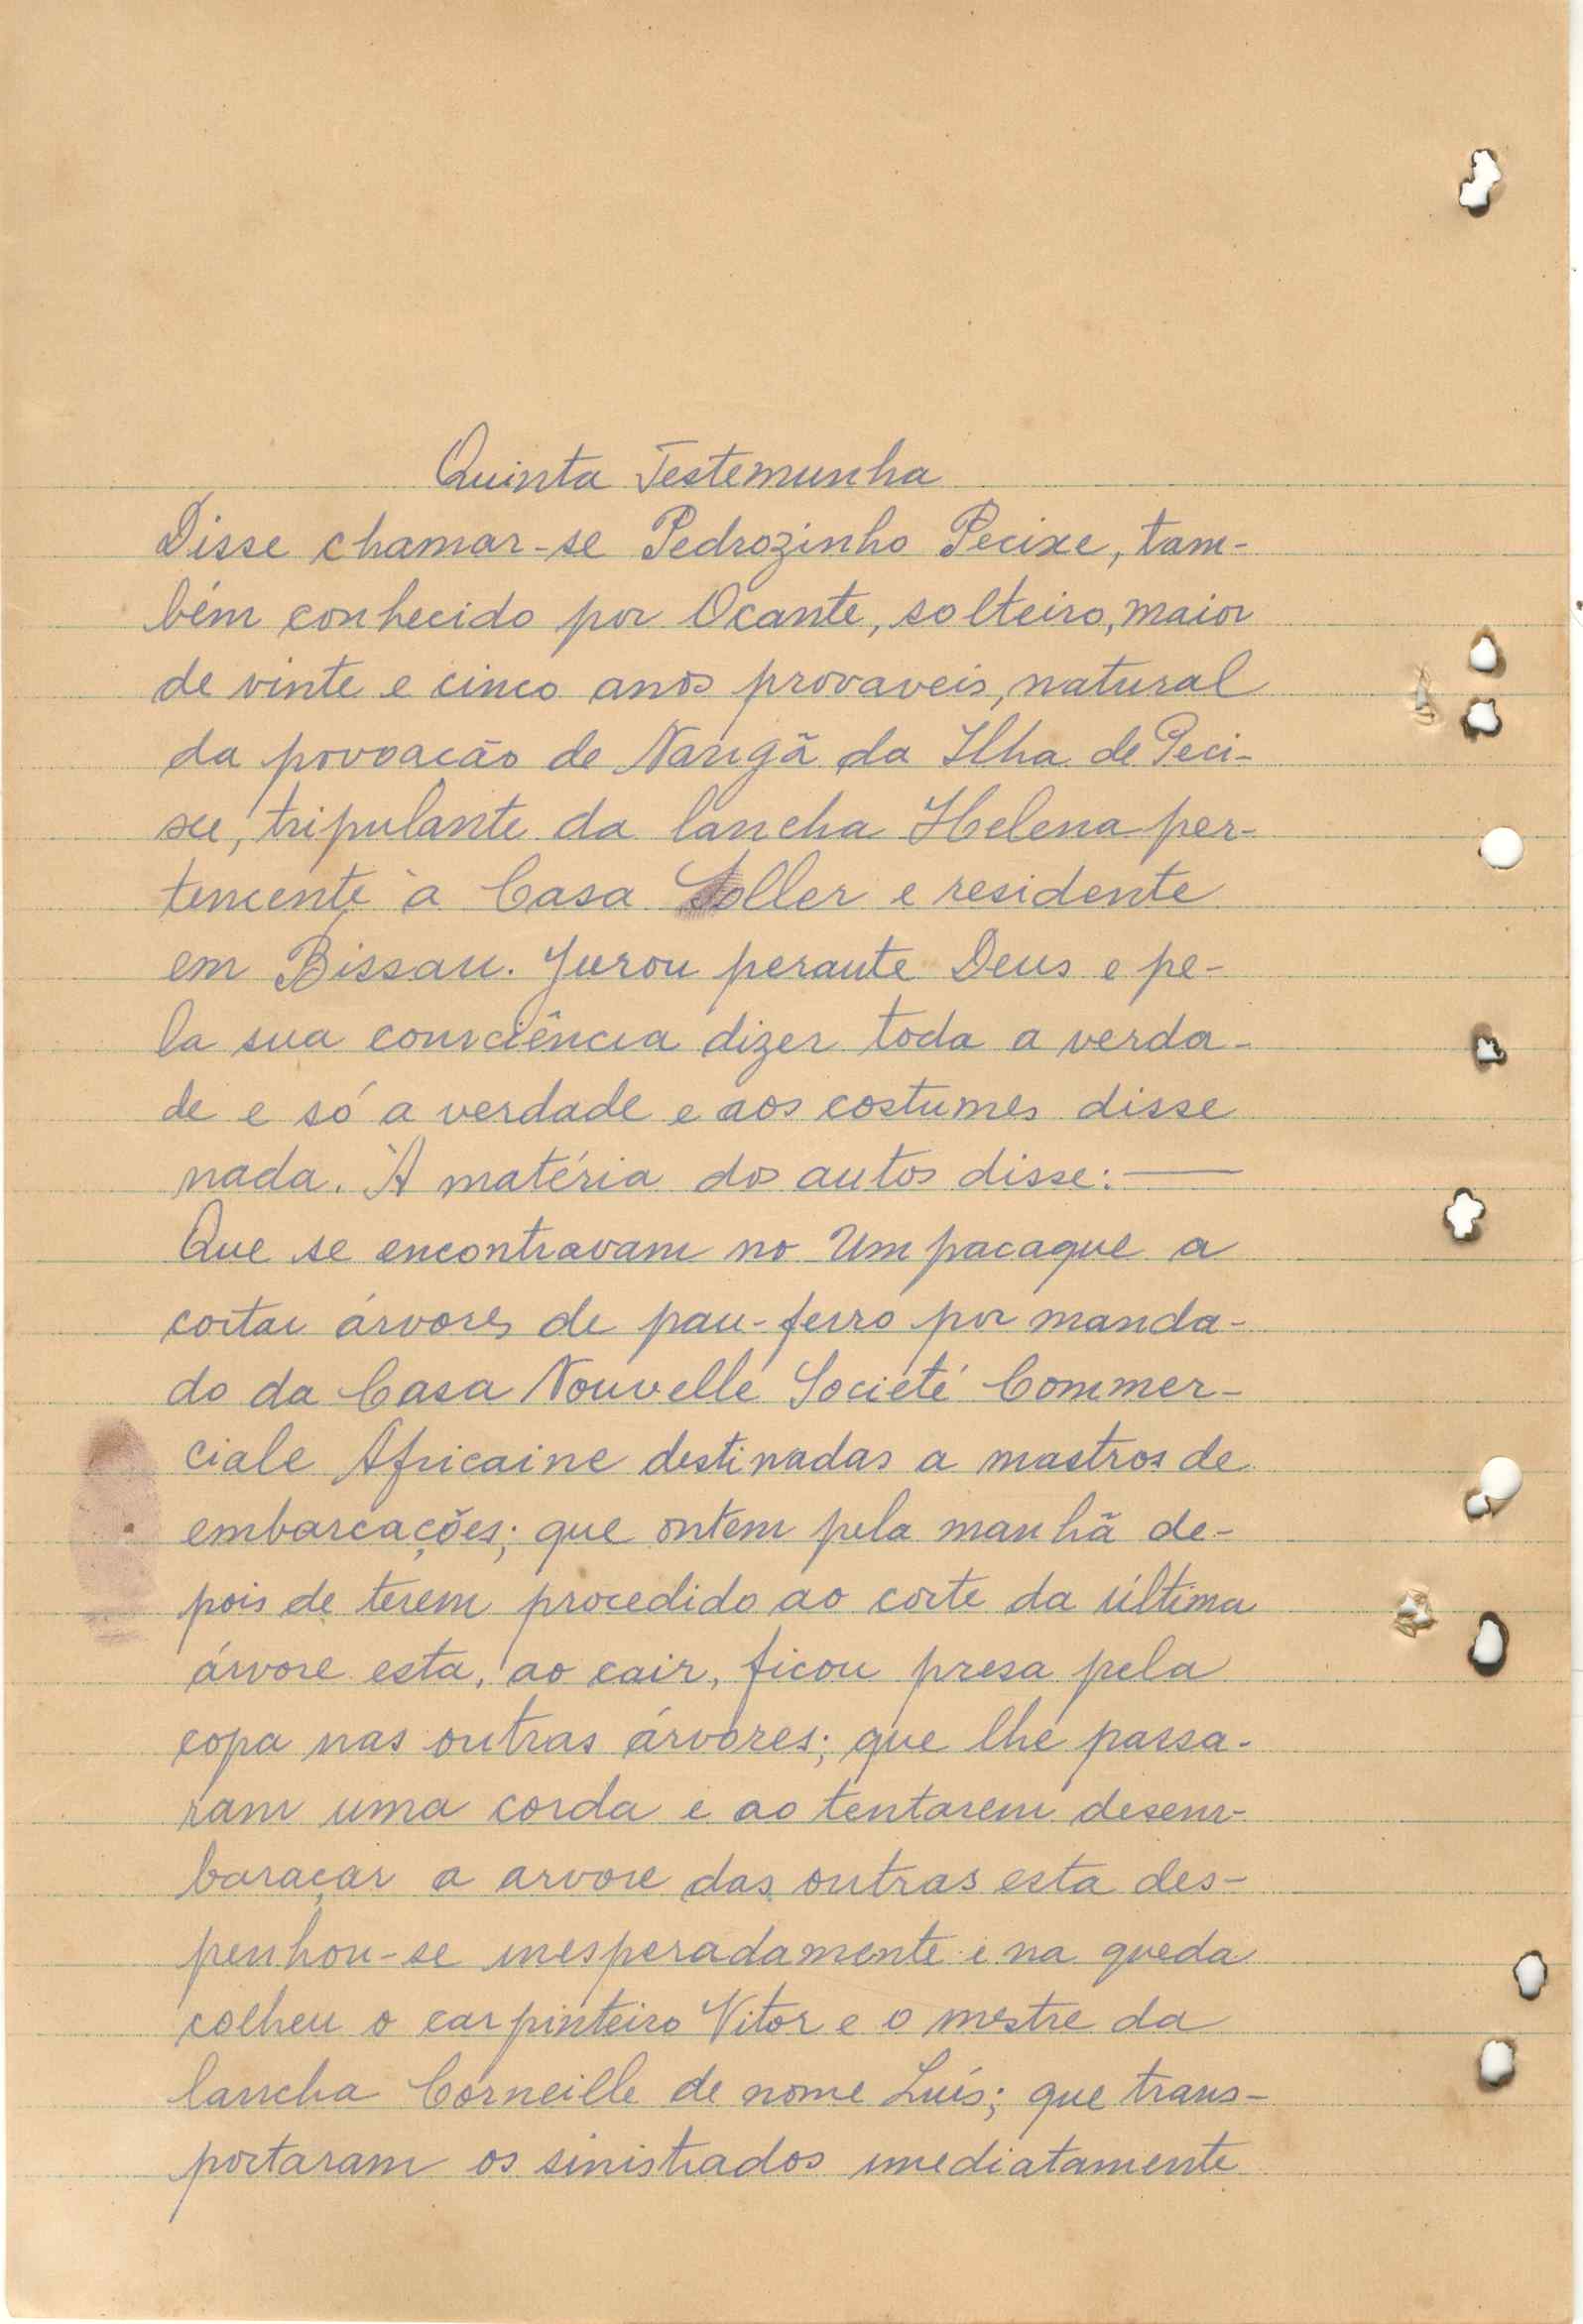 Quinta Testemunha
Disse chamar-se Pedrozinho Pecixe, tam-
bém conhecido por Ocante, solteiro, maior
de vinte e cinco anos provaveis, natural
da povoacão de Nangã da Ilha de Peci-
xe, tripulante da lancha Helena per-
tencente à Casa Soller e residente
em Bissau. Jurou perante Deus e pe-
la sua consciência dizer toda a verda-
de e só a verdade e aos costumes disse
nada. À matéria dos autos disse:—
Que se encontravam no Umpacaque a
cortar árvores de pau-ferro por manda-
do da Casa Nouvelle Societé Commer-
ciale Africaine destinadas a mastros de
embarcações; que ontem pela manhã de-
pois de terem procedido ao corte da última
árvore esta, ao cair, ficou presa pela
copa nas outras árvores; que lhe passa-
ram uma corda e ao tentarem desem-
baraçar a arvore das outras esta des-
penhou-se inesperadamente e na queda
colheu o carpinteiro Vitor e o mestre da
lancha Corneille de nome Luís; que trans-
portaram os sinistrados imediatamente